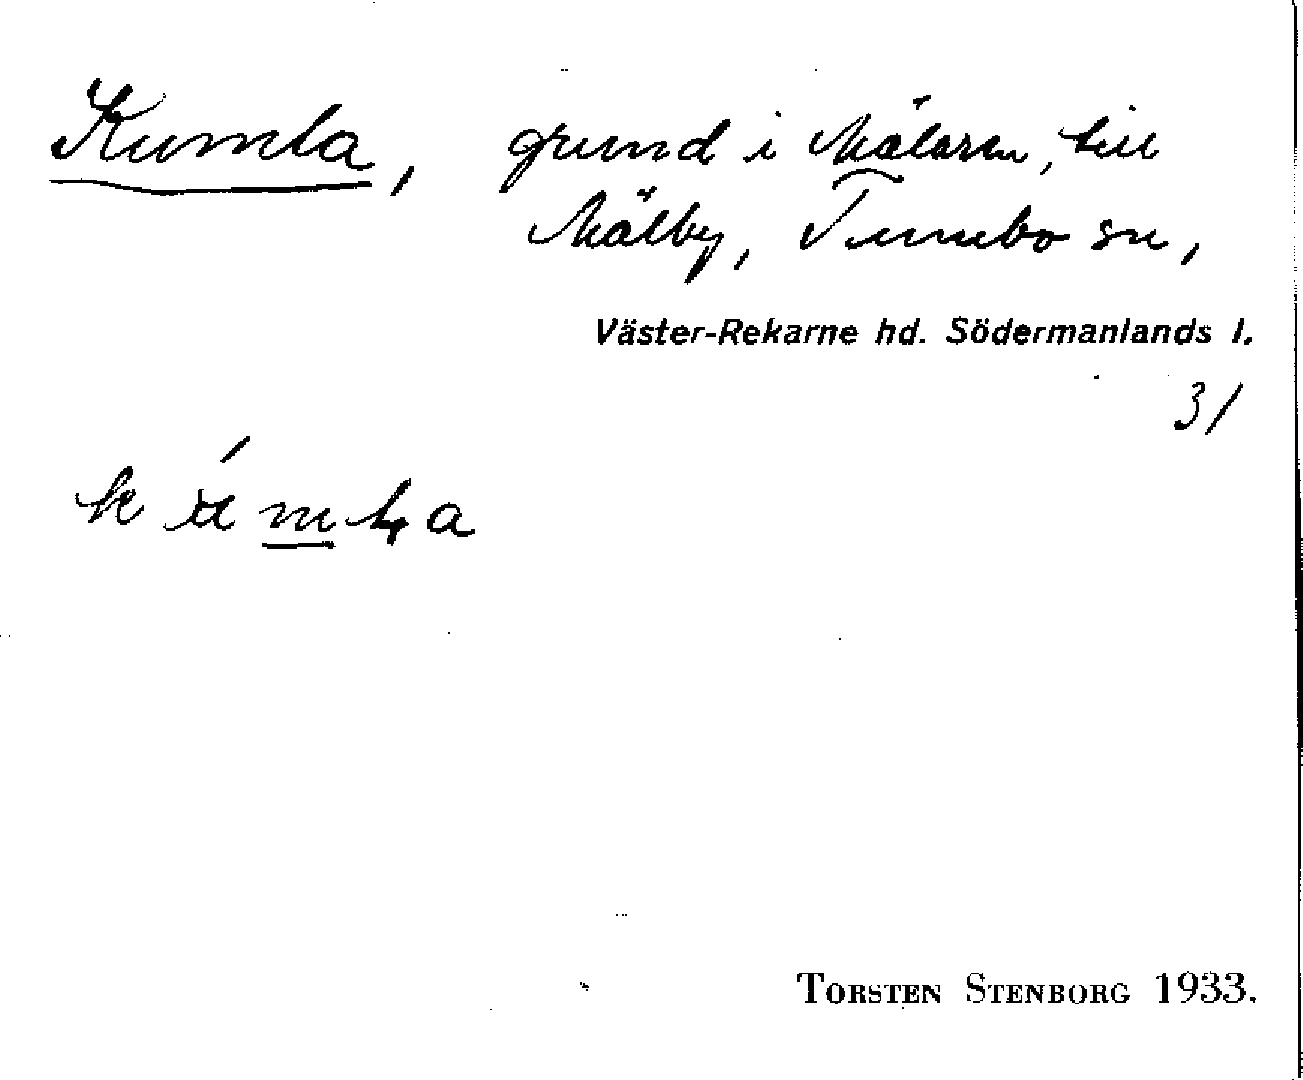 Kumla, grund i Mälaren, till
Mälby, Tumbo sn,
Väster-Rekarne hd. Södermanlands l.
31
TORSTEN STENBORG 1933.